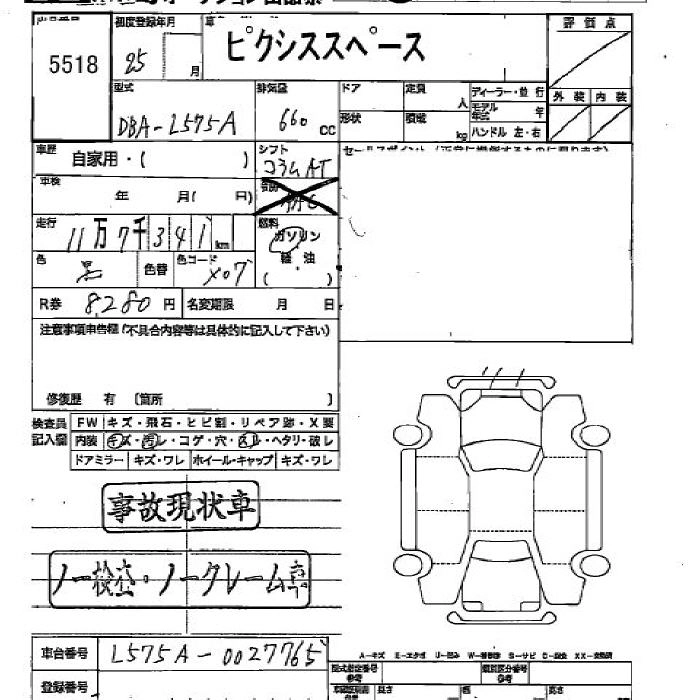 出品番号 5518
初度登録年月 25 月
ピクシススペース
評価点
型式 DBA-L575A
排気量 660 cc
ドア 定員 人
形状 積載 kg
ディーラー・並行
モデル年式 年
ハンドル 左・右
外装 内装
車歴 自家用・( )
シフト コラムAT
セールスポイント(正常に機能するものに限ります)
車検 年 月( 日)
走行 11万7千341km
燃料 ガソリン
軽油
( )
色 黒 色替 色コード X07
R券 8,280円 名変期限 月 日
注意事項申告欄(不具合内容等は具体的に記入して下さい)
修復歴 有 〔箇所 〕
検査員記入欄
FW キズ・飛石・ヒビ割・リペア跡・X要
内装 キズ・汚レ・コゲ・穴・凹凸・ヘタリ・破レ
ドアミラー キズ・ワレ ホイール・キャップ キズ・ワレ
事故現状車
ノー検査・ノークレーム
車台番号 L575A-0027765
A-キズ E-エクボ U-凹み W-補修跡 S-サビ C-腐食 XX-交換済
登録番号
型式指定番号 類別区分番号
長さ 幅 高さ